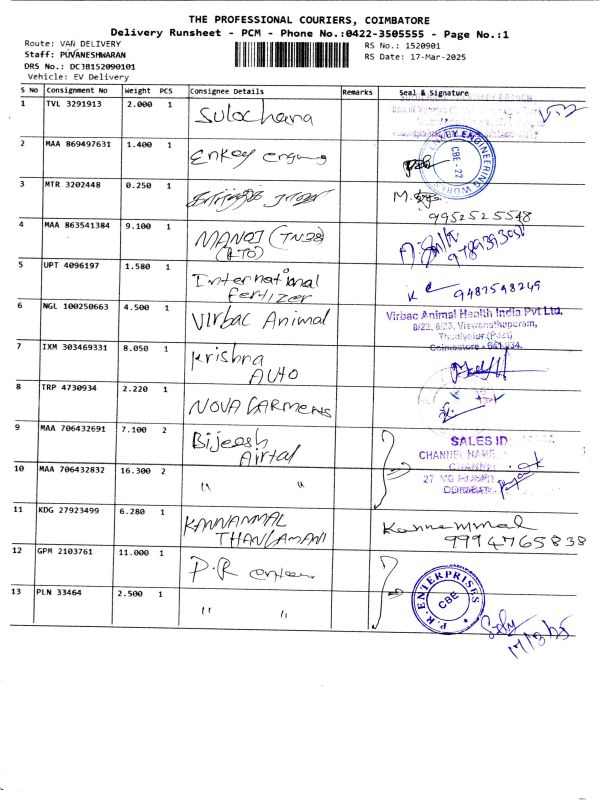 THE PROFESSIONAL COURIERS, COIMBATORE
Delivery Runsheet - PCM - Phone No.:0422-3505555 - Page No.:1
Route: VAN DELIVERY
RS No.: 1520901
Staff: PUVANESHWARAN
RS Date: 17-Mar-2025
DRS No.: DCJB152090101
Vehicle: EV Delivery
S No Consignment No Weight PCS Consignee Details Remarks Seal & Signature
1 TVL 3291913 2.000 1 Sulochana
2 MAA 869497631 1.400 1 Enkey
ENKEY ENGINEERING WORKS
CBE - 22
3 MTR 3202448 0.250 1
9952525548
4 MAA 863541384 9.100 1 MANOJ (TN38)
(RTO)
5 UPT 4096197 1.580 1 International
fertilizer
9487598249
6 NGL 100250663 4.500 1 Virbac Animal
Virbac Animal Health India Pvt Ltd.
6/23, 6/23, Viswanathapuram,
Thudiyalur (Post)
Coimbatore - 641 034.
7 IXM 303469331 8.050 1 Krishna
AUTO
8 TRP 4730934 2.220 1 NOVA GARMENS
9 MAA 706432691 7.100 2 Bijeesh
Airtal
SALES ID
CHANNEL NAME
10 MAA 706432832 16.300 2 " "
11 KDG 27923499 6.280 1 KANNAMMAL
THANGAMANI
Kannammal
9994765838
12 GPM 2103761 11.000 1 P.R
P.R. ENTERPRISES
CBE
13 PLN 33464 2.500 1 " "
17/3/25